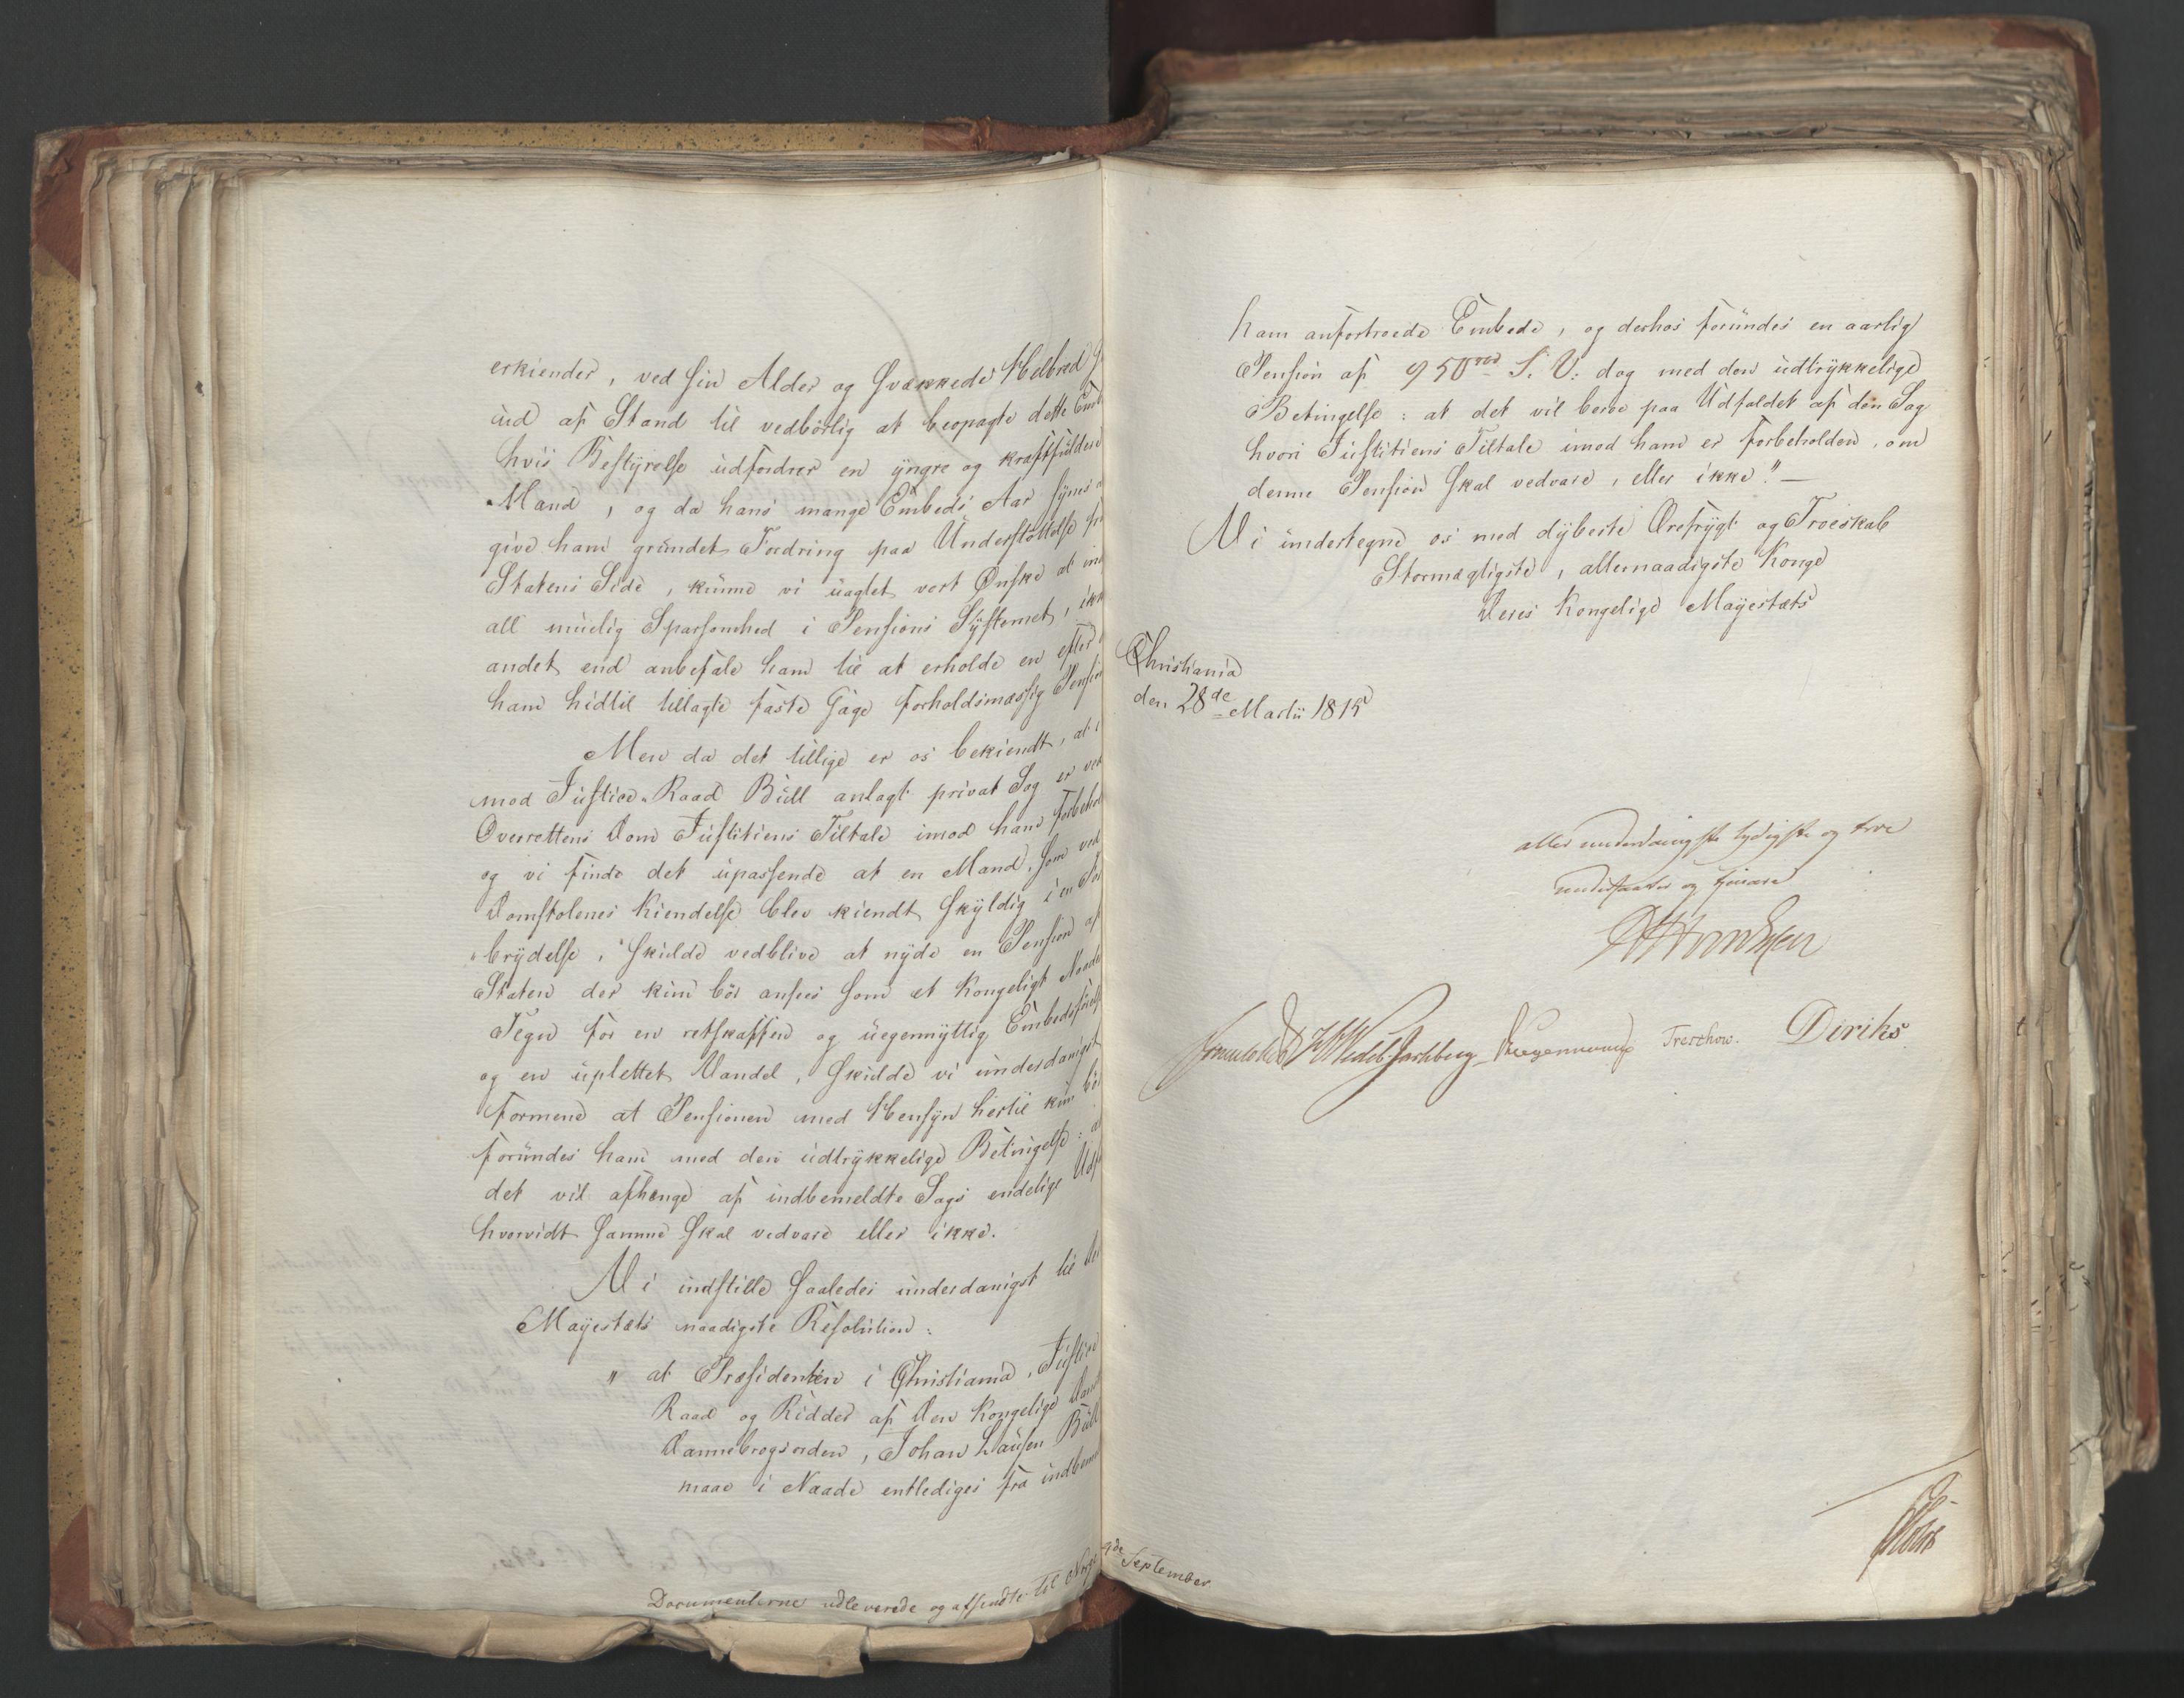 erkiender, ved sin Alder og svækkede Helbred
ud af Stand til vedbörlig at beopagte dette Emb
hvis Bestyrelse udfordrer en yngre og kraftfulder
Mand, og da hans mange Embeds Aar synes
give ham grundet Fordring paa Understöttelse fr
Statens Side, kunne vi uagtet vort Ønske at in
all muelig Sparsomhed i Pensions Systemet, ikk
andet end anbefale ham til at erholde en efter
ham hidtil tillagte faste Gage forholdsmæssig Pension
Men da det tillige er os bekiendt, at i
mod Justice-Raad Bull anlagt privat Sag er ved
Overrettens Dom Justitiens Tiltale imod ham forbehol
og vi finde det upassende at en Mand, som ved
Domstolenes Kiendelse blev kiendt skyldig i en For
brydelse, skulde vedblive at nyde en Pension af
Staten der kun bör ansees som et Kongeligt Naade
Tegn for en retskaffen og uegennyttig Embedsförelse
og en uplettet Vandel, skulde vi underdanigst
formene at Pensionen med Hensyn hertil kun bör
forundes ham med den udtrykkelige Betingelse: a
det vil afhænge af indbemeldte Sags endelige Udf
hvorvidt samme skal vedvare eller ikke.
Vi indstille saaledes underdanigst til De
Mayestæts naadigste Resolution:
" at Præsidenten i Christiania, Justice
Raad og Ridder af Den Kongelige Dan
Dannebrogsorden, Johan Lausen Bull
maae i Naade entlediges fra indbem
Documenterne udleverede og afsendte til Norge
ham anfortroede Embede, og derhos forundes en aarlig
Pension af 950 rbd S. V: dog med den udtrykkelige
Betingelse: at det vil beroe paa Udfaldet af den Sag
hvori Justitiens Tiltale imod ham er forbeholden, om
denne Pension skal vedvare, eller ikke." —
Vi undertegne os med dybeste Ærefrygt og Troeskab
Stormægtigste, allernaadigste Konge
Deres Kongelige Mayestæts
Christiania
den 28de Martii 1815
allerunderdanigste lydigste og troe
undersaatter og tjenere
Sommerhielm HWedel Jarlsberg Krogh Treschow. Diriks
de September